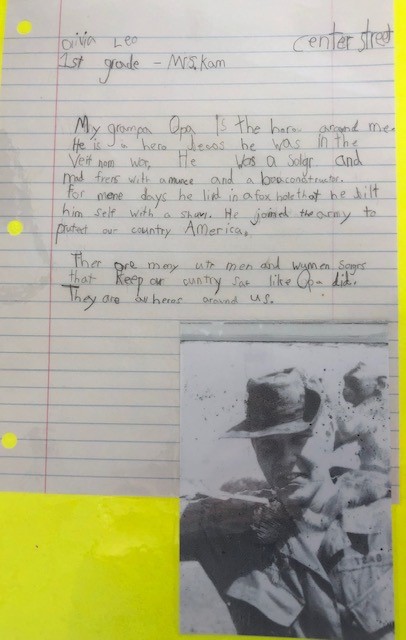 Olivia Leo
center street
1st grade - Mrs. Kam
My grampa Opa Is the horo around me.
He is a hero becos he was In the
Veit nom wor. He was a solgr and
mad frens with a munce and a boaconstrutor.
For mene days he livd in a fox hole that he bilt
him self with a shuvl. He joined the army to
protect our country America.
Ther are meny utr men and wymen solgrs
that keep our cuntry saf like Opa did.
They are our heros around us.